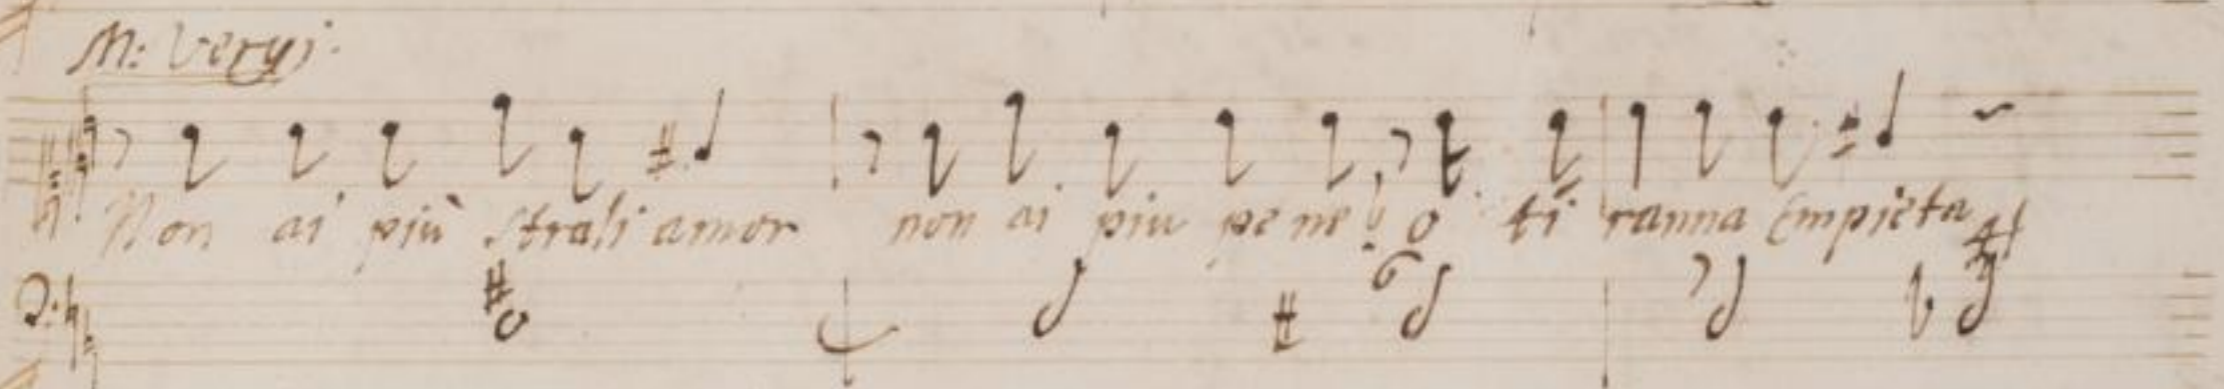 M: Vergi.
Non ai più Strali amor non ai piu pene! o ti ranna Empieta